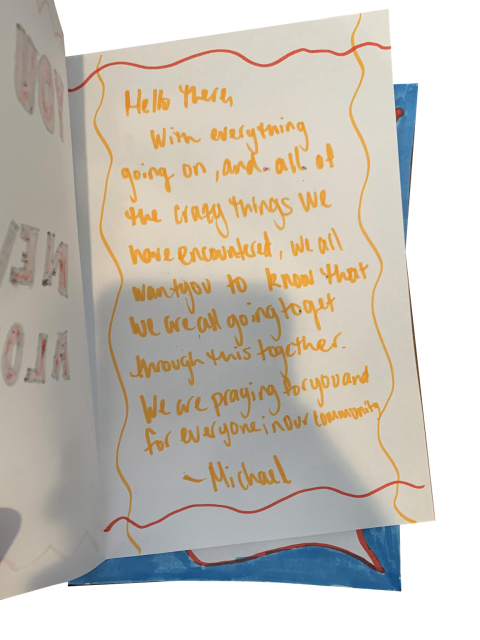 Hello there,
With everything
going on, and all of
the crazy things we
have encountered, we all
want you to know that
we are all going to get
through this together.
We are praying for you and
for everyone in our community
~Michael
YOU